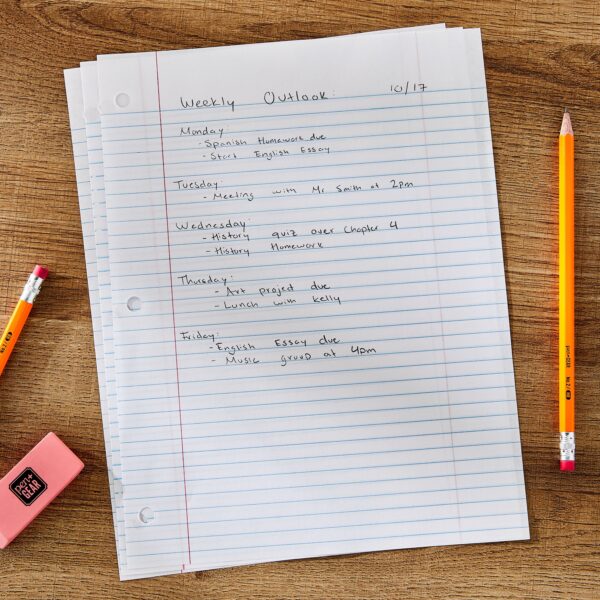 Weekly Outlook: 10/17
Monday:
- Spanish Homework due
- Start English Essay
Tuesday
- Meeting with Mr Smith at 2pm
Wednesday:
- History quiz over Chapter 4
- History Homework
Thursday:
- Art project due
- Lunch with kelly
Friday:
- English Essay due
- Music group at 4pm
pen+
GEAR